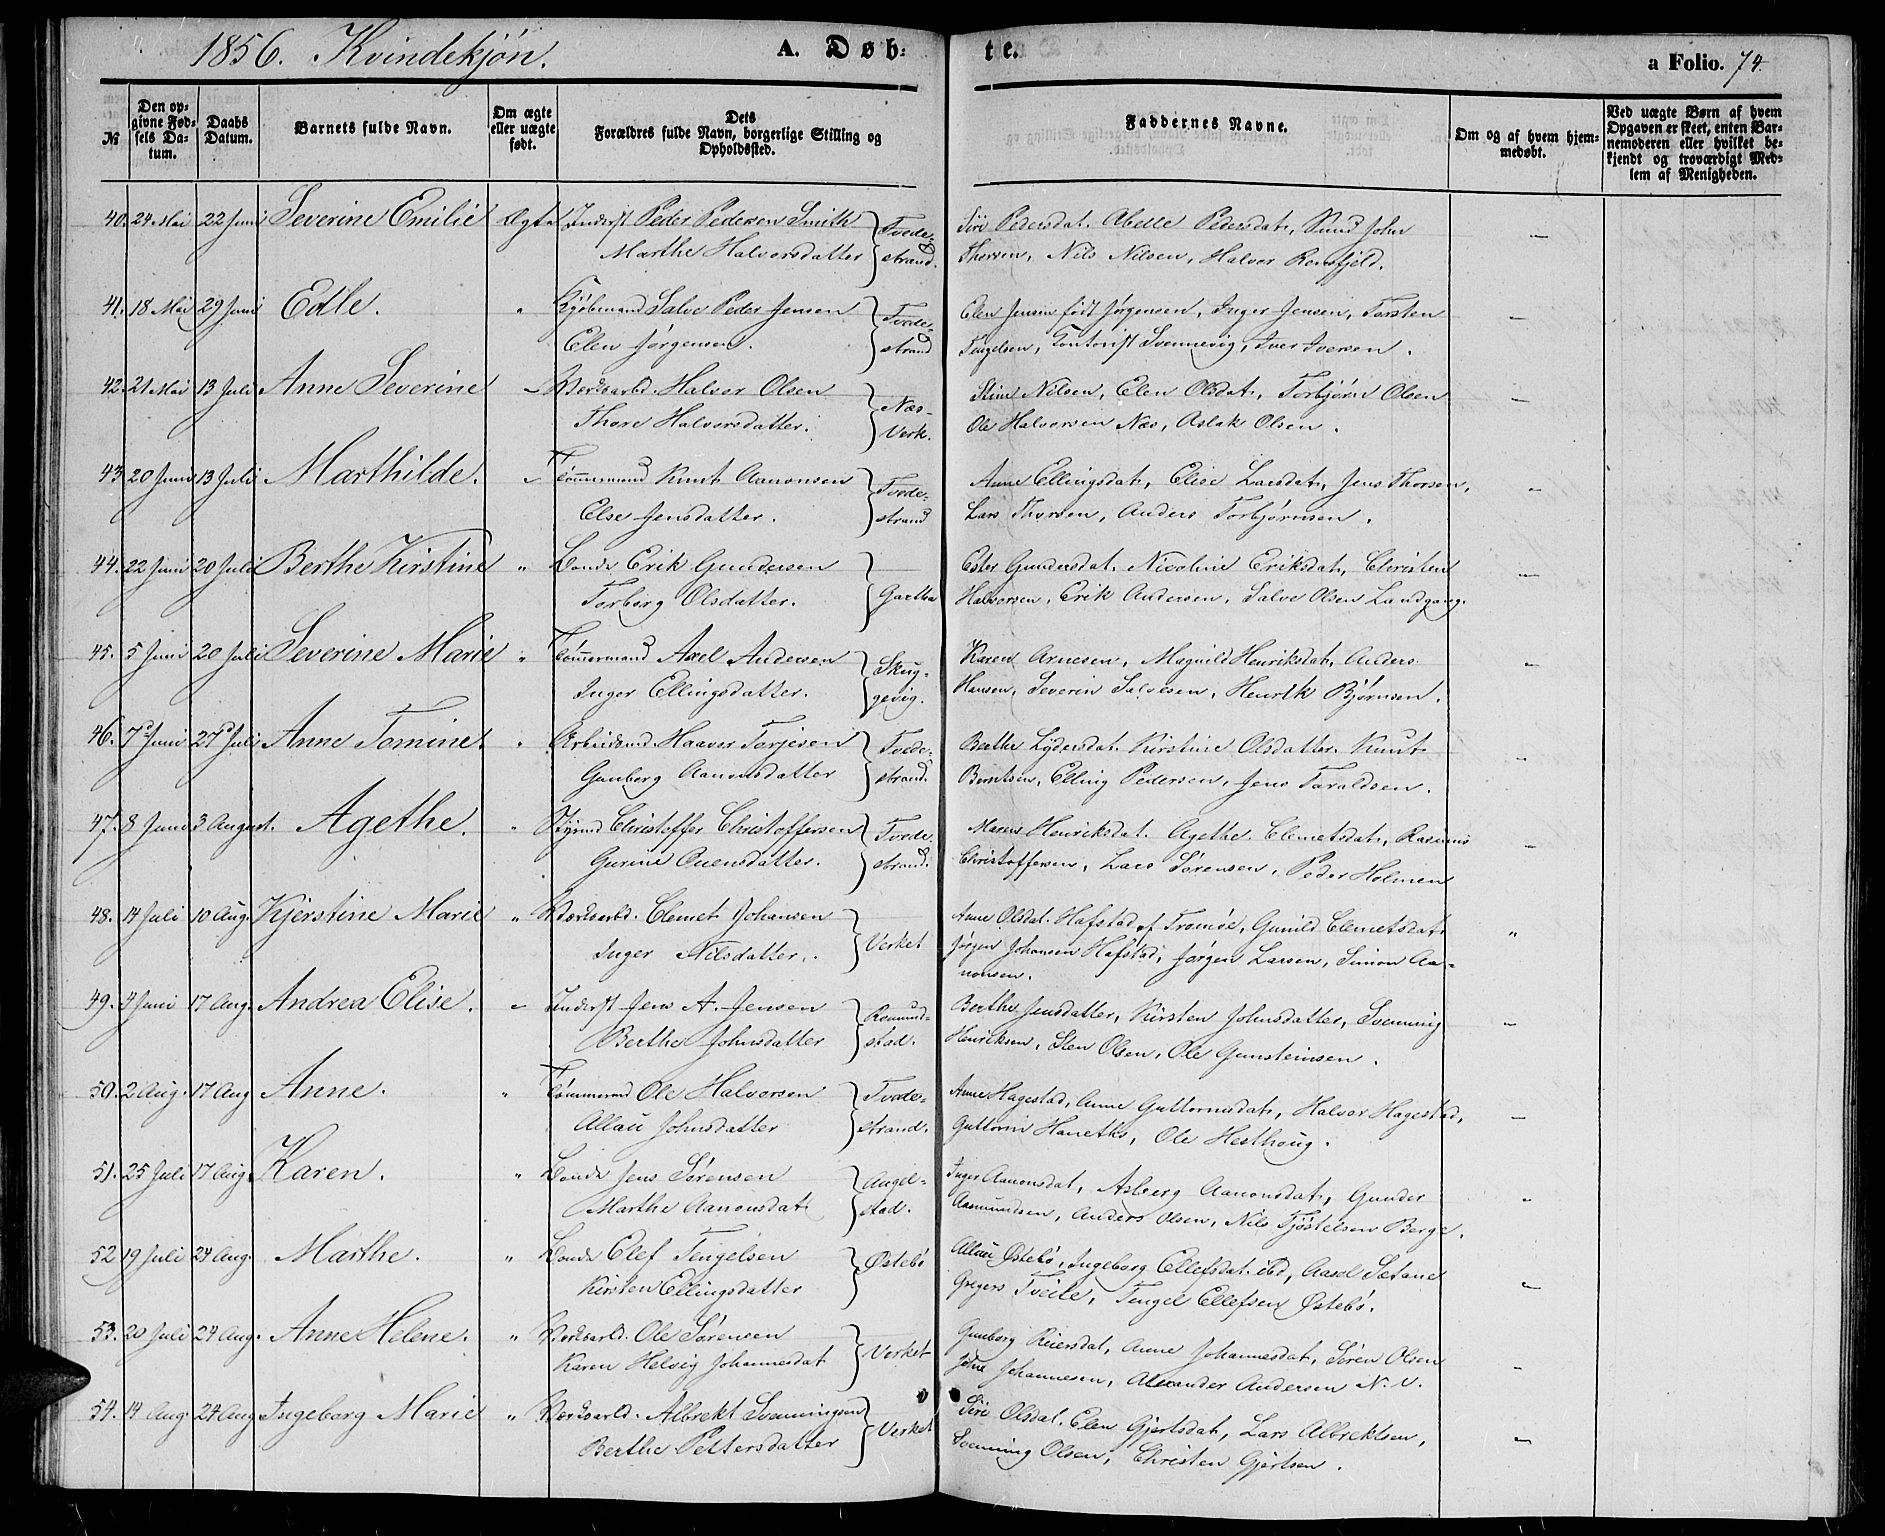 1856. Kvindekjøn.
A. Døb-
te.
a Folio. 74
№
Den op-
givne Fød-
sels Da-
tum.
Daabs
Datum.
Barnets fulde Navn.
Om ægte
eller uægte
født.
Dets
Forældres fulde Navn, borgerlige Stilling og
Opholdssted.
Faddernes Navne.
Om og af hvem hjem-
medøbt.
Ved uægte Børn af hvem
Opgaven er skeet, enten Bar-
nemoderen eller hvilket be-
kjendt og troværdigt Med-
lem af Menigheden.
40. 24 Mai 22 Juni Severine Emilie Ægte Inderst Peder Pedersen Smith Tvede- Siri Pedersdat. Abelle Pedersdat, Knud John
Marthe Halvorsdatter strand. Thorsen, Nils Nilsen, Halvor Rensfjeld. –
41. 18 Mai 29 Juni Edle. " Kjøbmand Salve Peder Jensen Tvede- Elen Jensen født Jørgensen, Inger Jensen, Torsten
Elen Jørgensen. strand Tengelsen, Kontorist Svennevig, Iver Iversen. –
42. 21 Mai 13 Juli Anne Severine – Værksarbd. Halvor Olsen Næs- Stine Nilsen, Elen Olsdat, Torbjørn Olsen
Thore Halvorsdatter. Verk. Ole Halvorsen Næs, Aslak Olsen. –
43 20 Juni 13 Juli Marthilde. " Tømmermand Knut Aanonsen Tvede- Anne Ellingsdat, Elise Larsdat, Jens Thorsen,
Else Jensdatter. strand Lars Thorsen, Anders Torbjørnsen. –
44. 22 Juni 20 Juli Berthe Kirstine " Bonde Erik Gundersen Ester Gundersdat. Nicoline Eriksdat, Christen
Torborg Olsdatter. Gartha Halvorsen, Erik Andersen, Salve Olsen Landgang. –
45. 5 Juni 20 Juli Severine Marie " Tømmermand Axel Andersen Skug- Karen Arnesen, Magnild Henriksdat, Anders
Inger Ellingsdatter. gevig. Hansen, Severin Salvesen, Henrik Bjørnsen. –
46. 7d Juni 27d Juli Anne Tomine. " Arbeidsmd. Haavor Torjesen Tvede- Berthe Lydersdat. Kirstine Olsdatter. Knut
Gunborg Aanonsdatter strand. Berntsen, Elling Pedersen, Jens Taraldsen. "
47. 8 Juni 3 August. Agethe. " Styrmd Christoffer Christoffersen Tvede- Maren Henriksdat. Agethe Clemetsdat, Rasmus
Gurine Auensdatter. strand. Christoffersen, Lars Sørensen, Peder Holmen –
48. 14 Juli 10 Aug. Kjerstine Marie " Værksarbd. Clemet Johansen Verket Anne Olsdat. Hafstad af Tromøe, Gunild Clemetsdat,
Inger Nilsdatter. Jørgen Johansen Hafstad, Jørgen Larsen, Simon Aa- "
nonsen.
49. 4 Juni 17 Aug. Andrea Elise. – Inderst Jens A. Jensen Romund- Berthe Jensdatter, Kirsten Johnsdatter, Svenning
Berthe Johnsdatter stad. Henriksen, Sten Olsen, Ole Gunsteinsen. –
50. 2 Aug. 17 Aug Anne. " Tømmermd Ole Halvorsen Tvede- Anne Hagestad, Anne Guttormsdat, Halvor Hagestad,
Allau Johnsdatter strand. Guttorm Haneths, Ole Hesthoug. –
51. 25 Juli 17 Aug. Karen. " Bonde Jens Sørensen Angel- Inger Aanonsdat, Asberg Aanonsdat, Gunder
Marthe Aanonsdat stad. Aasmundsen, Anders Olsen, Nils Tjøstelsen Berge. "
52 19 Juli 24 Aug. Marthe. " Bonde Elef Tengelsen Østebø Allau Østebø, Ingeborg Ellefsdat. ibd, Aasel Sætane
Kirsten Ellingsdatter Gregers Tveite, Tengel Ellefsen Østebø. –
53. 20 Juli 24 Aug. Anne Helene. " Værksarbd. Ole Sørensen Verket Gunborg Reiersdat, Anne Johannesdat, Søren Olsen
Karen Helvig Johannesdat John Johannesen, Alexander Andersen N. V. –
54. 14 Aug. 24 Aug Ingeborg Marie " Værksarbd. Albrekt Svenningsen Verket Siri Olsdat. Elen Gjertsdat, Lars Albrektsen,
Berthe Pettersdatter Svenning Olsen, Christen Gjertsen. –